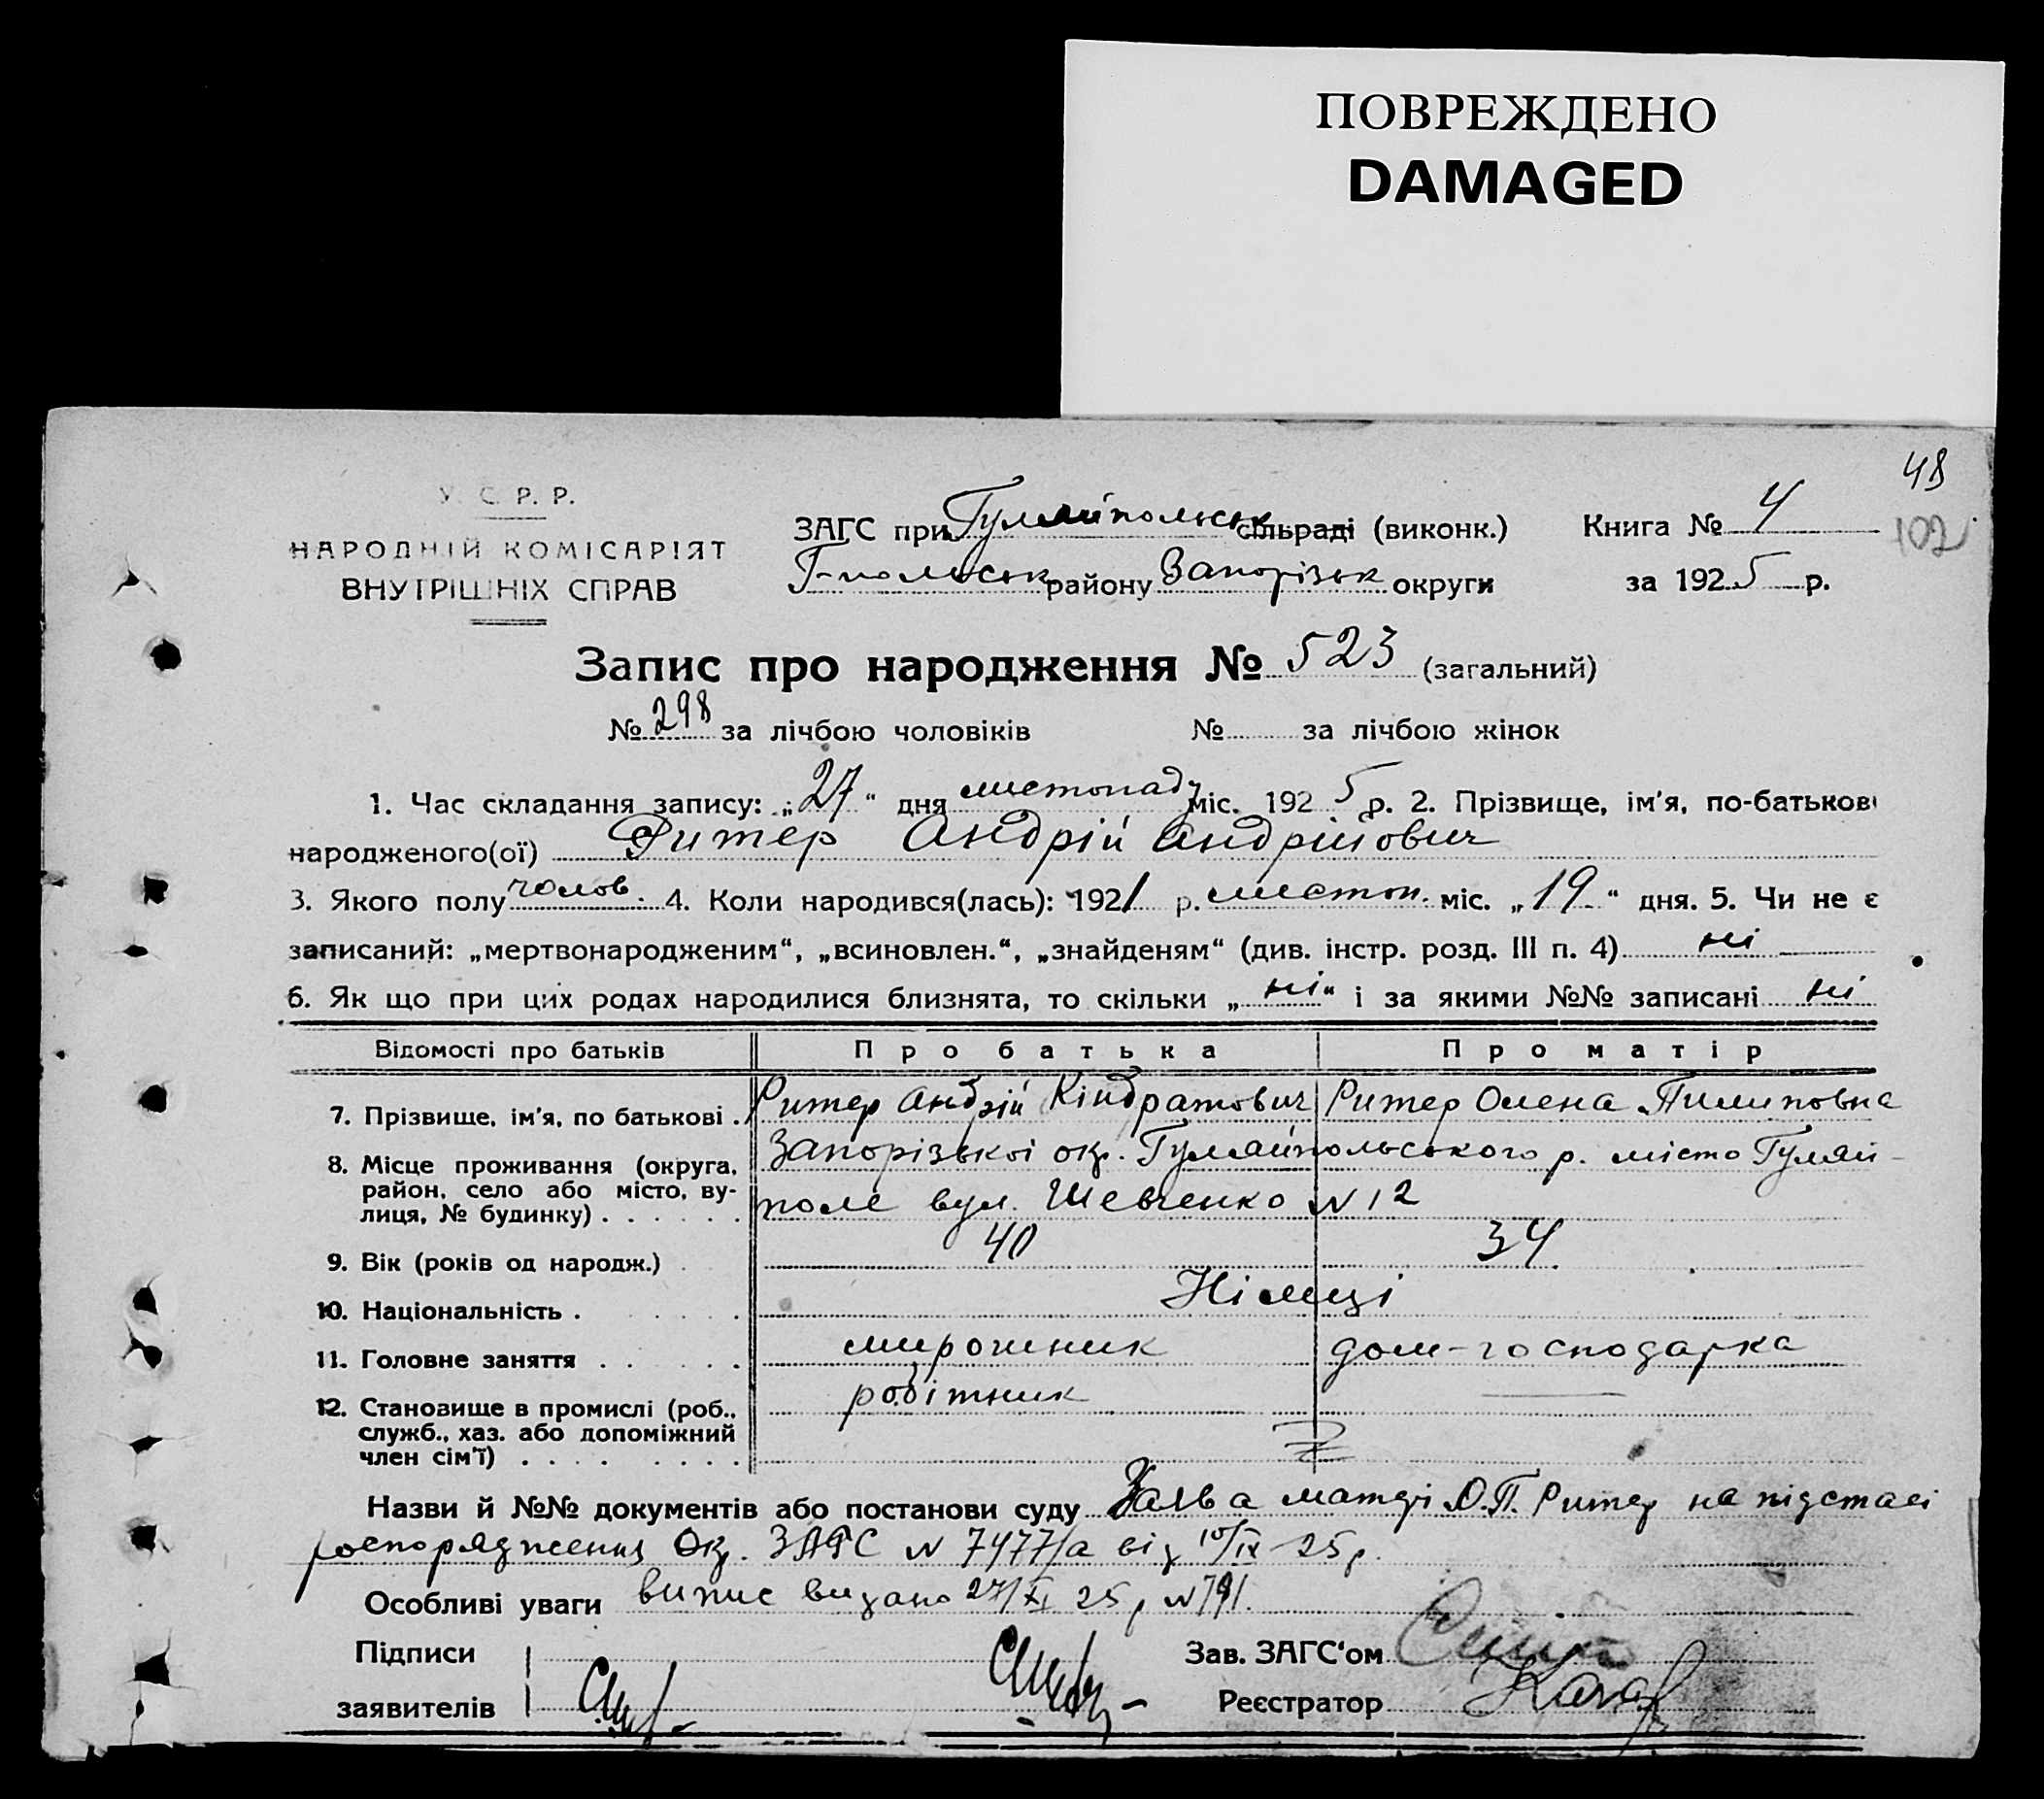 ПОВРЕЖДЕНО
DAMAGED
48
102
У. С. Р. Р.
НАРОДНІЙ КОМІСАРІЯТ
ВНУТРІШНІХ СПРАВ
ЗАГС при Гуляйпольськ сільраді (виконк.)
Г-польськ району Запорізьк округи
Книга № 4
за 1925 р.
Запис про народження № 523 (загальний)
№ 298 за лічбою чоловіків № за лічбою жінок
1. Час складання запису: „27“ дня листопаду міс. 1925 р. 2. Прізвище, ім'я, по-батькові
народженого(ої) Ритер Андрій Андрійович
3. Якого полу чолов. 4. Коли народився(лась): 1921 р. листоп. міс. „19“ дня. 5. Чи не є
записаний: „мертвонародженим“, „всиновлен.“, „знайденям“ (див. інстр. розд. III п. 4) ні
6. Як що при цих родах народилися близнята, то скільки „ні“ і за якими №№ записані ні
Відомості про батьків Про батька Про матір
7. Прізвище, ім'я, по батькові . Ритер Андрій Кіндратович Ритер Олена Пилиповна
8. Місце проживання (округа, район, село або місто, вулиця, № будинку) . . . . . . Запорізької окр. Гуляйпольського р. місто Гуляй-
поле вул. Шевченко N 12
9. Вік (років од народж.) 40 34
10. Національність . Німці
11. Головне заняття . . . . . мирошник дом-господарка
12. Становище в промислі (роб., служб., хаз. або допоміжний член сім'ї) . . . . робітник
Назви й №№ документів або постанови суду Заява матері О.П. Ритер на підставі
роспорядження Окр. ЗАГС N 7477/а від 10/IX 25р.
Особливі уваги випис видано 27/XI 25р N 791.
Підписи
заявителів
Зав. ЗАГС'ом
Реєстратор